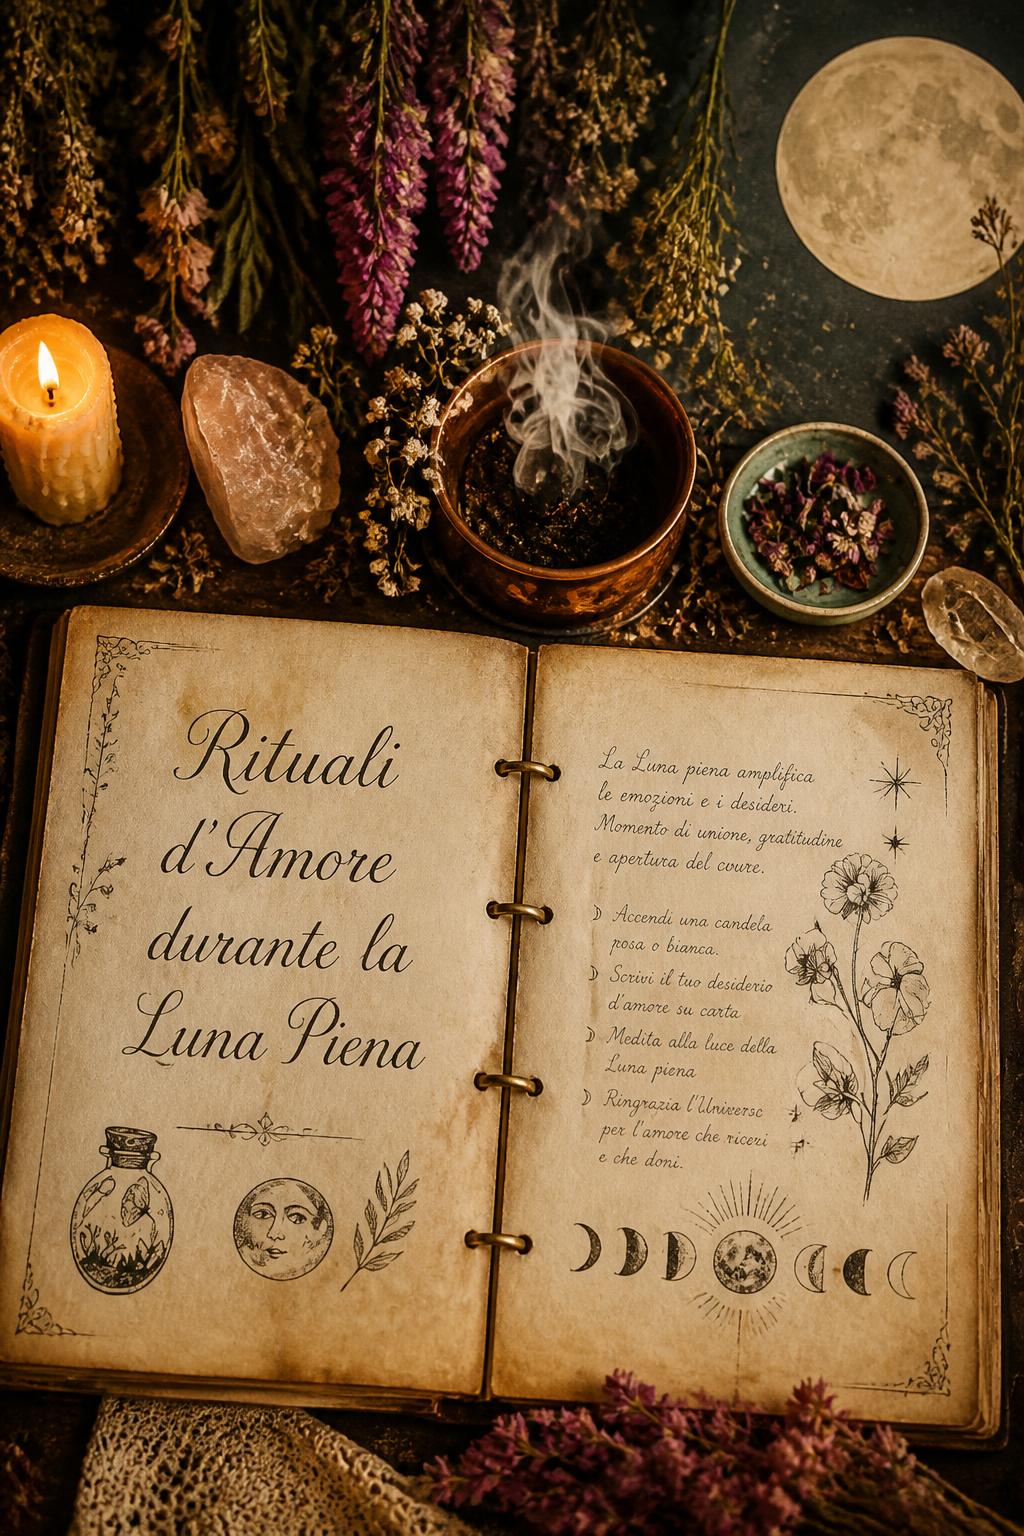 Rituali
d'Amore
durante la
Luna Piena
La Luna piena amplifica
le emozioni e i desideri.
Momento di unione, gratitudine
e apertura del cuore.
Accendi una candela
rosa o bianca.
Scrivi il tuo desiderio
d'amore su carta
Medita alla luce della
Luna piena
Ringrazia l'Universo
per l'amore che ricevi
e che doni.